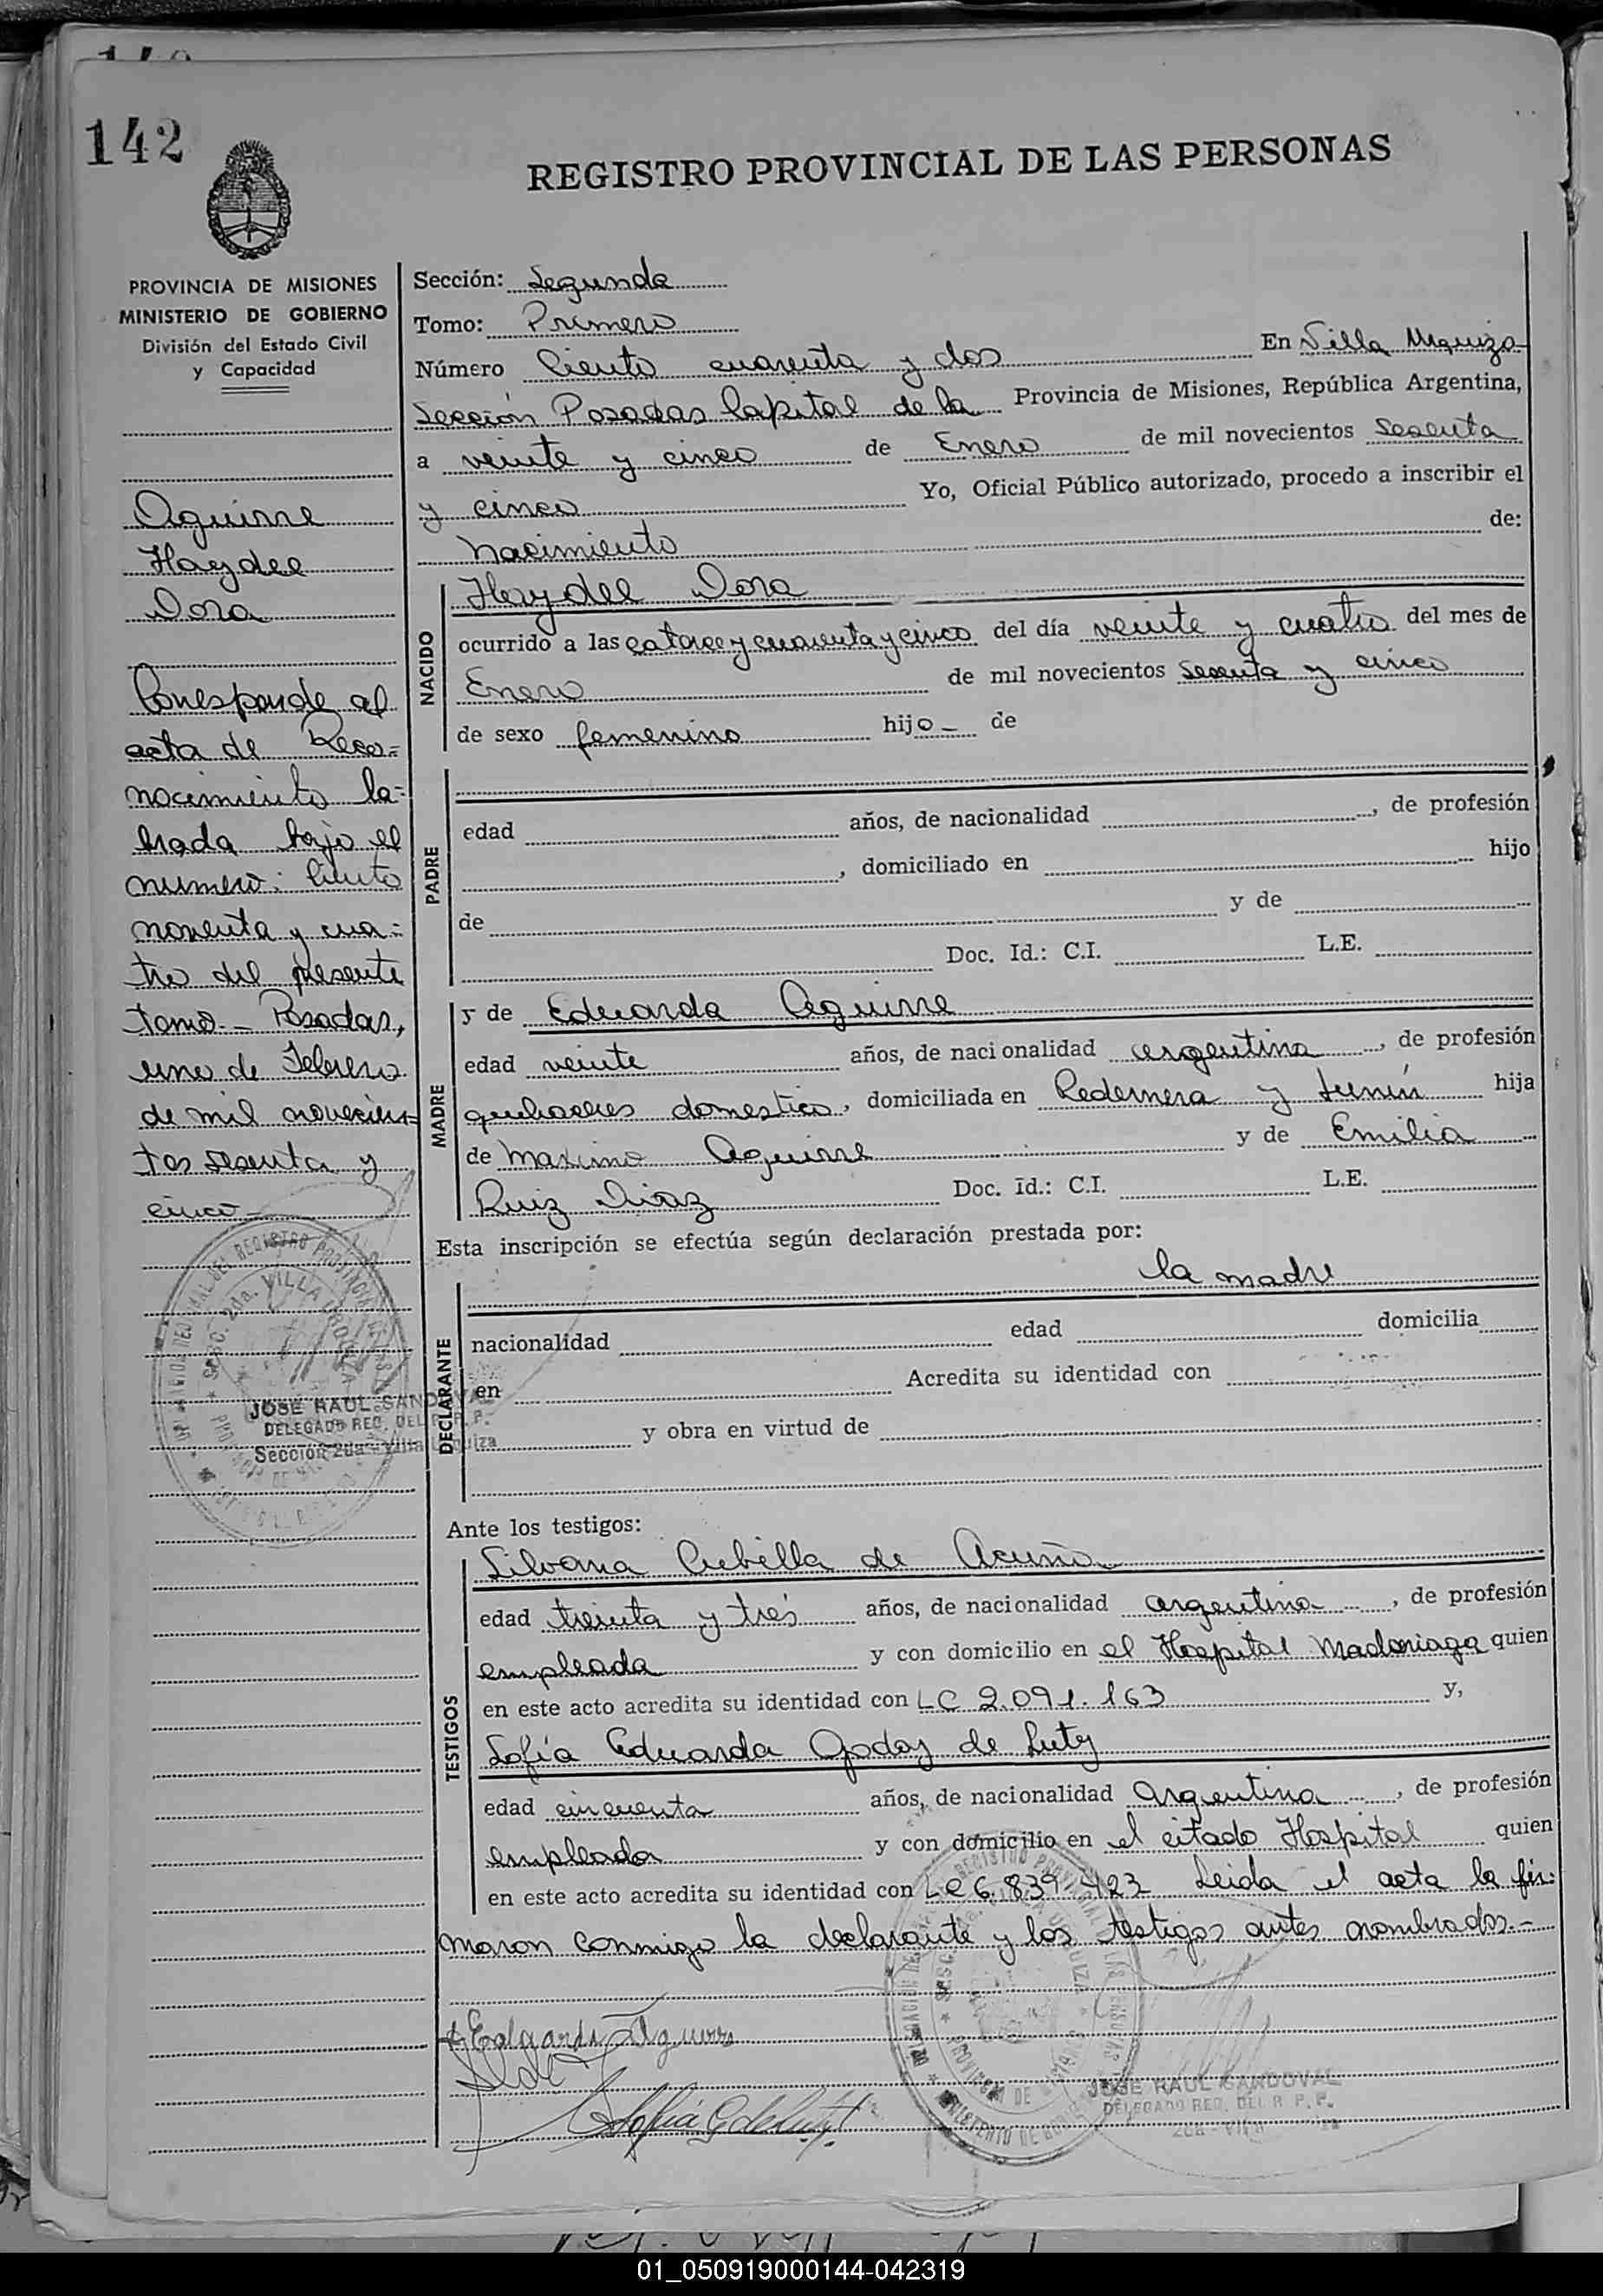 142
REGISTRO PROVINCIAL DE LAS PERSONAS
PROVINCIA DE MISIONES
MINISTERIO DE GOBIERNO
División del Estado Civil
y Capacidad
Aguirre
Haydee
Dora
Corresponde al
acta de Reco=
nocimiento la=
brada bajo el
numero: Ciento
noventa y cua=
tro del presente
tomo.- Posadas,
uno de Febrero
de mil novecien=
tos sesenta y
cinco
JOSE RAUL SANDOVAL
DELEGADO REG. DEL R. P. P.
Sección 2da - Villa Urquiza
Sección: Segunda
Tomo: Primero
Número Ciento cuarenta y dos En Villa Urquiza
Sección Posadas Capital de la Provincia de Misiones, República Argentina,
a veinte y cinco de Enero de mil novecientos sesenta
y cinco Yo, Oficial Público autorizado, procedo a inscribir el
nacimiento de:
NACIDO
Haydee Dora
ocurrido a las catorce y cuarenta y cinco del día veinte y cuatro del mes de
Enero de mil novecientos sesenta y cinco
de sexo femenino hijo - de
PADRE
edad años, de nacionalidad , de profesión
, domiciliado en hijo
de y de
Doc. Id.: C.I. L.E.
MADRE
y de Eduarda Aguirre
edad veinte años, de nacionalidad argentina, de profesión
quehaceres domestico, domiciliada en Pedernera y Junín hija
de Maximo Aguirre y de Emilia
Ruiz Diaz Doc. Id.: C.I. L.E.
Esta inscripción se efectúa según declaración prestada por:
la madre
DECLARANTE
nacionalidad edad domicilia
en Acredita su identidad con
y obra en virtud de
Ante los testigos:
TESTIGOS
Silvana Cubilla de Acuña
edad treinta y tres años, de nacionalidad argentina, de profesión
empleada y con domicilio en el Hospital Madariaga quien
en este acto acredita su identidad con LC 2.091.163 y,
Sofía Eduarda Godoy de Luty
edad cincuenta años, de nacionalidad Argentina, de profesión
empleada y con domicilio en el citado Hospital quien
en este acto acredita su identidad con LC 6.839.423 Leida el acta la fir-
maron conmigo la declarante y los testigos antes nombrados.-
Aguirre
Sofía G de Luty
JOSE RAUL SANDOVAL
DELEGADO REG. DEL R. P. P.
01_050919000144-042319